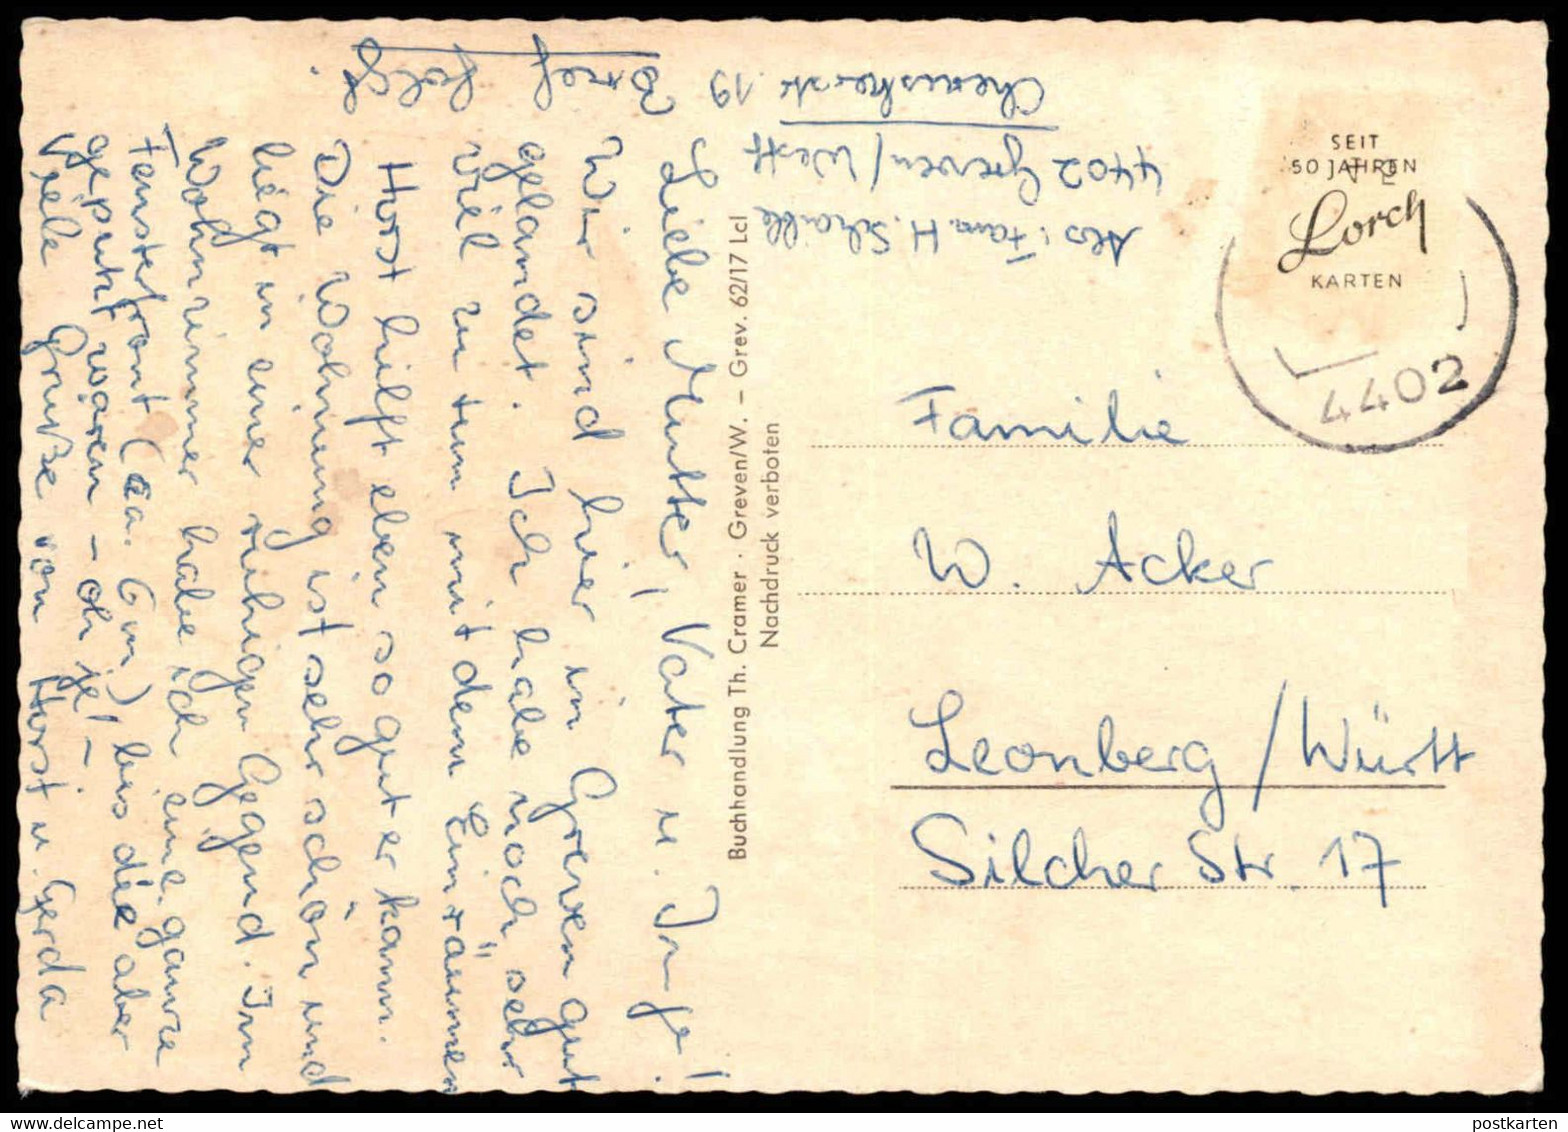 Liebe Mutter, Vater u. Inge!
Wir sind hier in Greven gut
gelandet. Ich habe noch sehr
viel zu tun mit dem Einräumen
Horst hilft eben so gut er kann.
Die Wohnung ist sehr schön und
liegt in einer ruhigen Gegend. Im
Wohnzimmer habe ich eine ganze
Fensterfront (ca. 6 m) bis die aber
geputzt wären - oh je! -
Viele Grüße von Horst u. Gerda
Brief folgt
Abs: Fam. H. Schaible
4402 Greven/Westf
Cheruskerstr. 19
Buchhandlung Th. Cramer · Greven/W. – Grev. 62/17 Lcl
Nachdruck verboten
SEIT
50 JAHREN
Lorch
KARTEN
4402
Familie
W. Acker
Leonberg/Württ
Silcher Str 17
postkarten